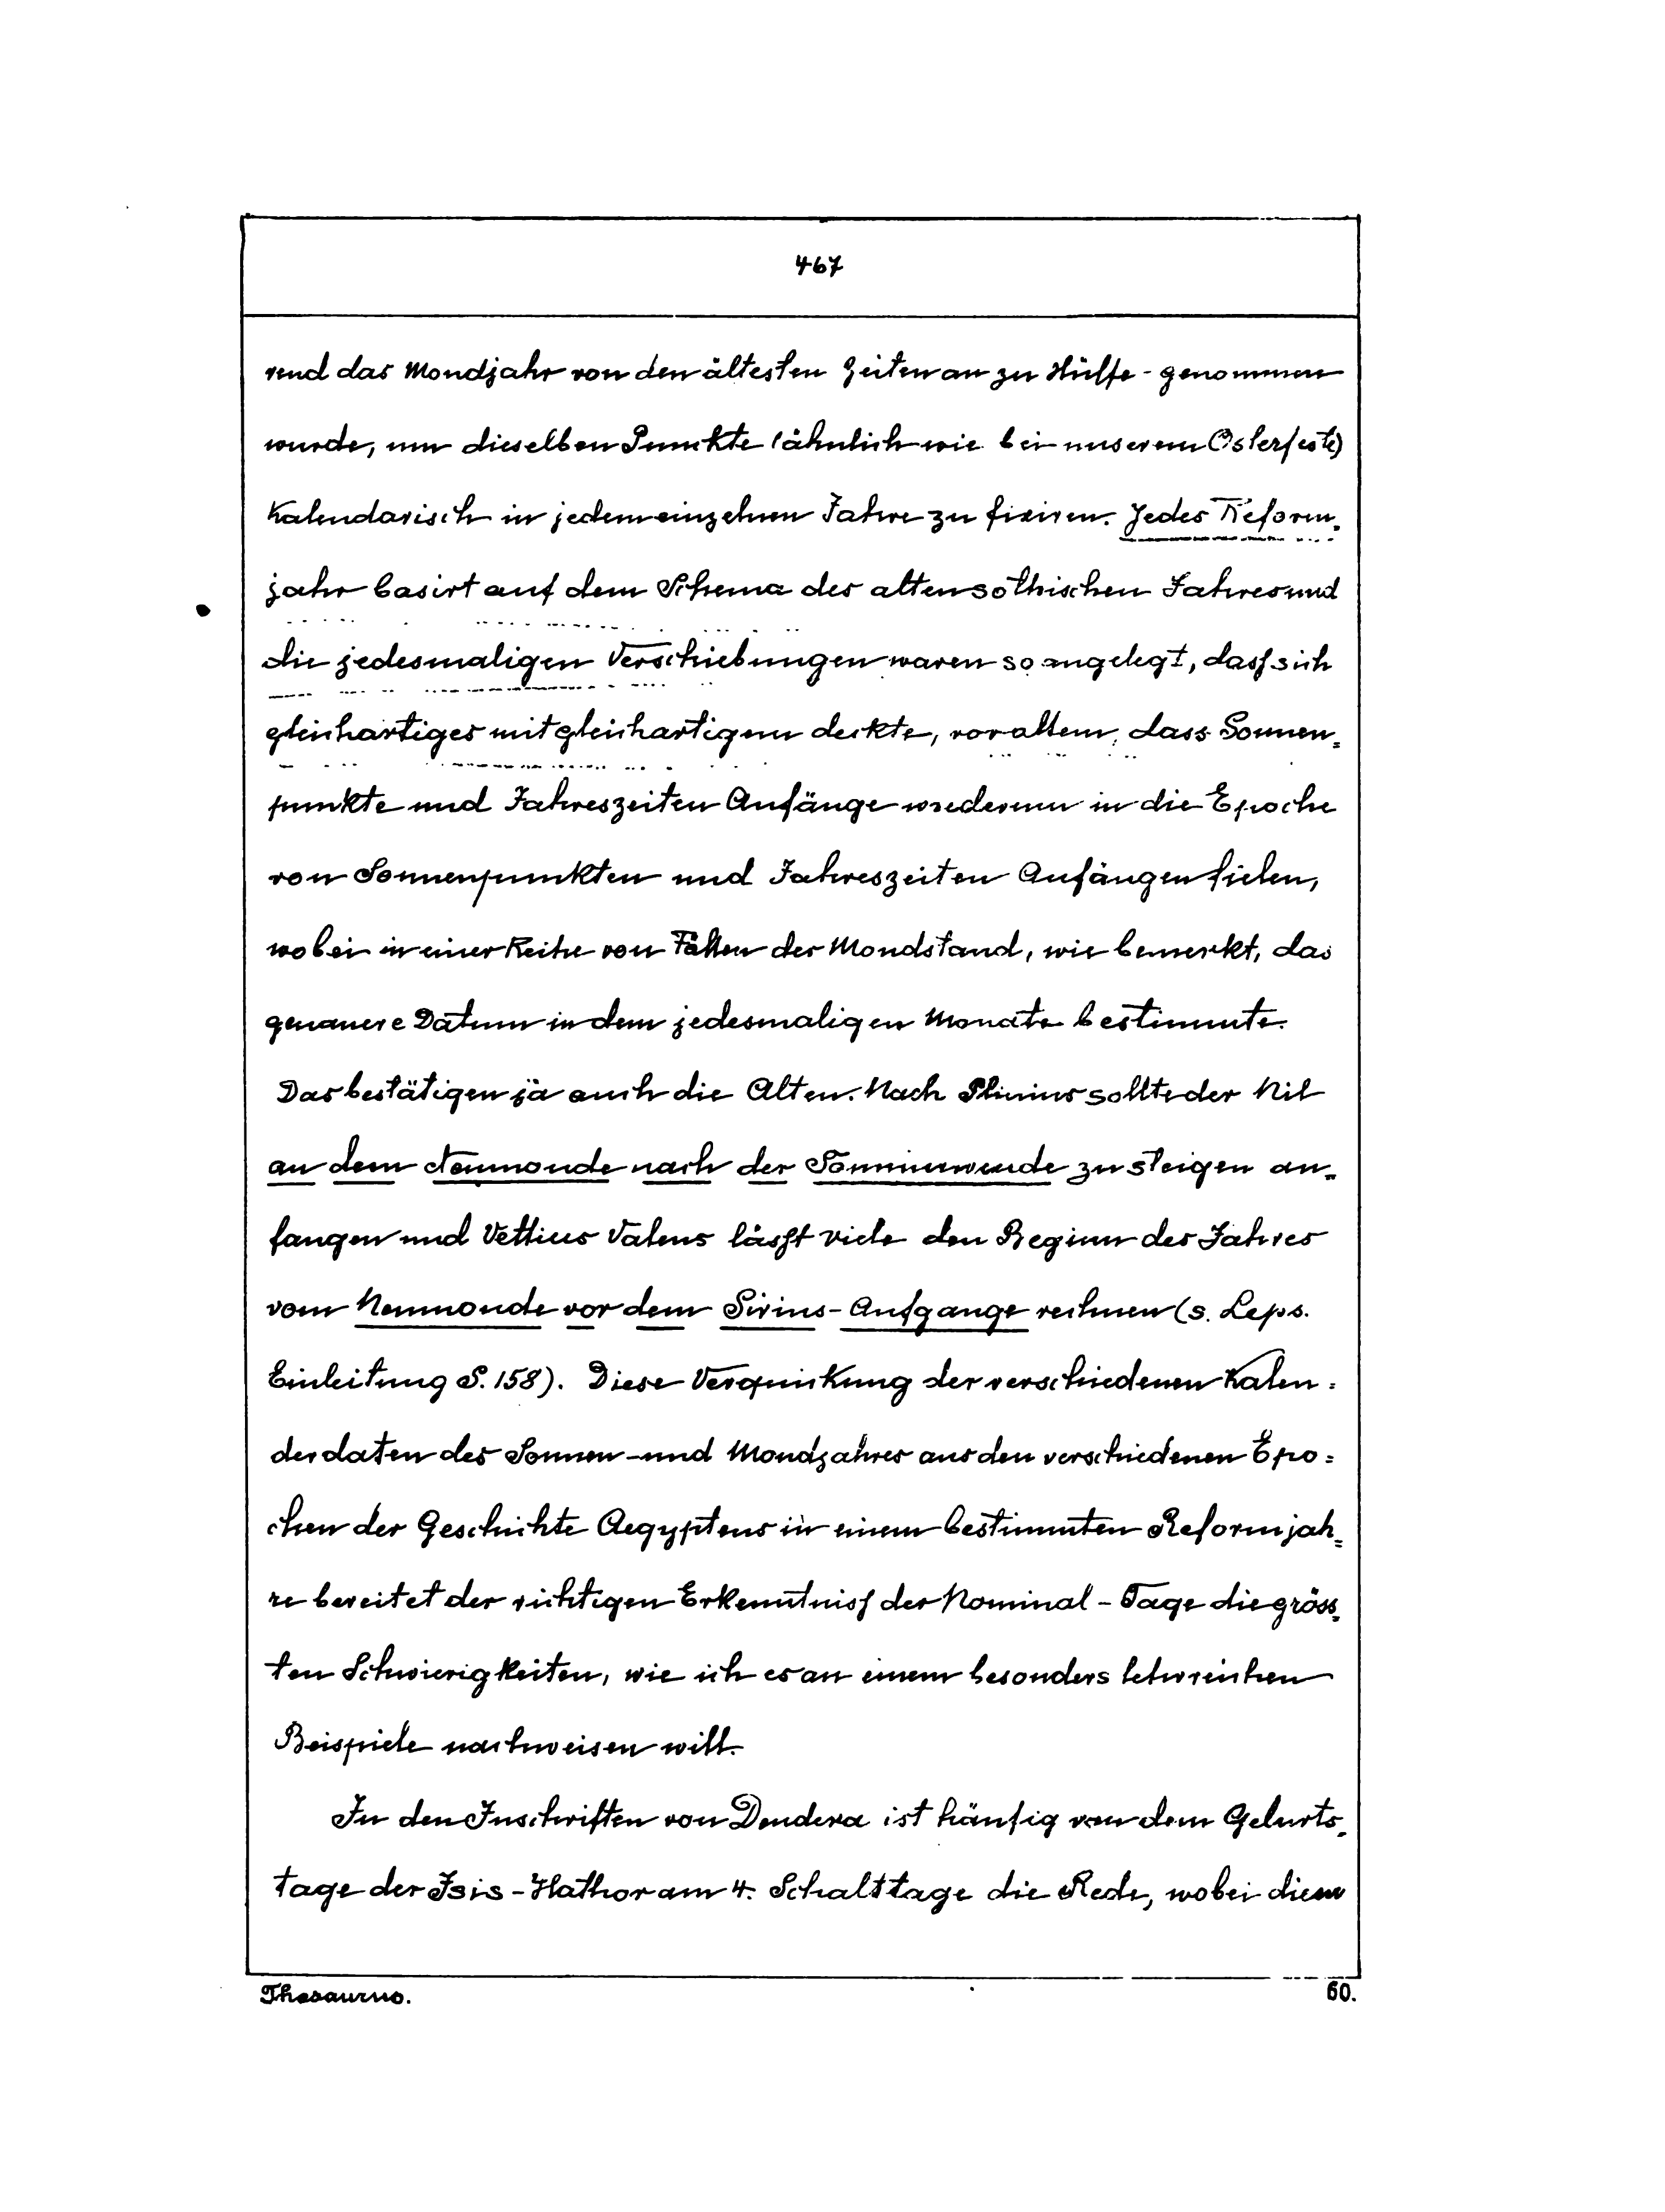 467
rend das Mondjahr von den ältesten Zeiten an zu Hülfe-genommen
wurde, um dieselben Punkte (ähnlich wie bei unserem Osterfeste)
Kalendarisch in jedem einzelnen Jahre zu fixiren. Jedes Reform-
jahr basirt auf dem Schema des alten sothischen Jahres und
die jedesmaligen Verschiebungen waren so angelegt, dass sich
gleichartiges mit gleichartigem deckte, vor allem, dass Sonnen=
punkte und Jahreszeiten Anfänge wiederum in die Epoche
von Sonnenpunkten und Jahreszeiten Anfängen fielen,
wobei in einer Reihe von Fällen der Mondstand, wie bemerkt, das
genauere Datum in dem jedesmaligen Monate bestimmte.
Das bestätigen ja auch die Alten. Nach Plinius sollte der Nil
an dem Neumonde nach der Sommerwende zu steigen an=
fangen und Vettius Valens lässt viele den Beginn des Jahres
vom Neumonde vor dem Sirius-Aufgange rechnen (s. Leps.
Einleitung S. 158). Diese Verquickung der verschiedenen Kalen=
derdaten des Sonnen-und Mondjahres aus den verschiedenen Epo=
chen der Geschichte Aegyptens in einem bestimmten Reformjah=
re bereitet der richtigen Erkenntniss der Nominal-Tage die gröss=
ten Schwierigkeiten, wie ich es an einem besonders lehrreichen
Beispiele nachweisen will.
In den Inschriften von Dendera ist häufig von dem Geburts=
tage der Isis-Hathor am 4. Schalttage die Rede, wobei diesem
Thesaurus.
60.